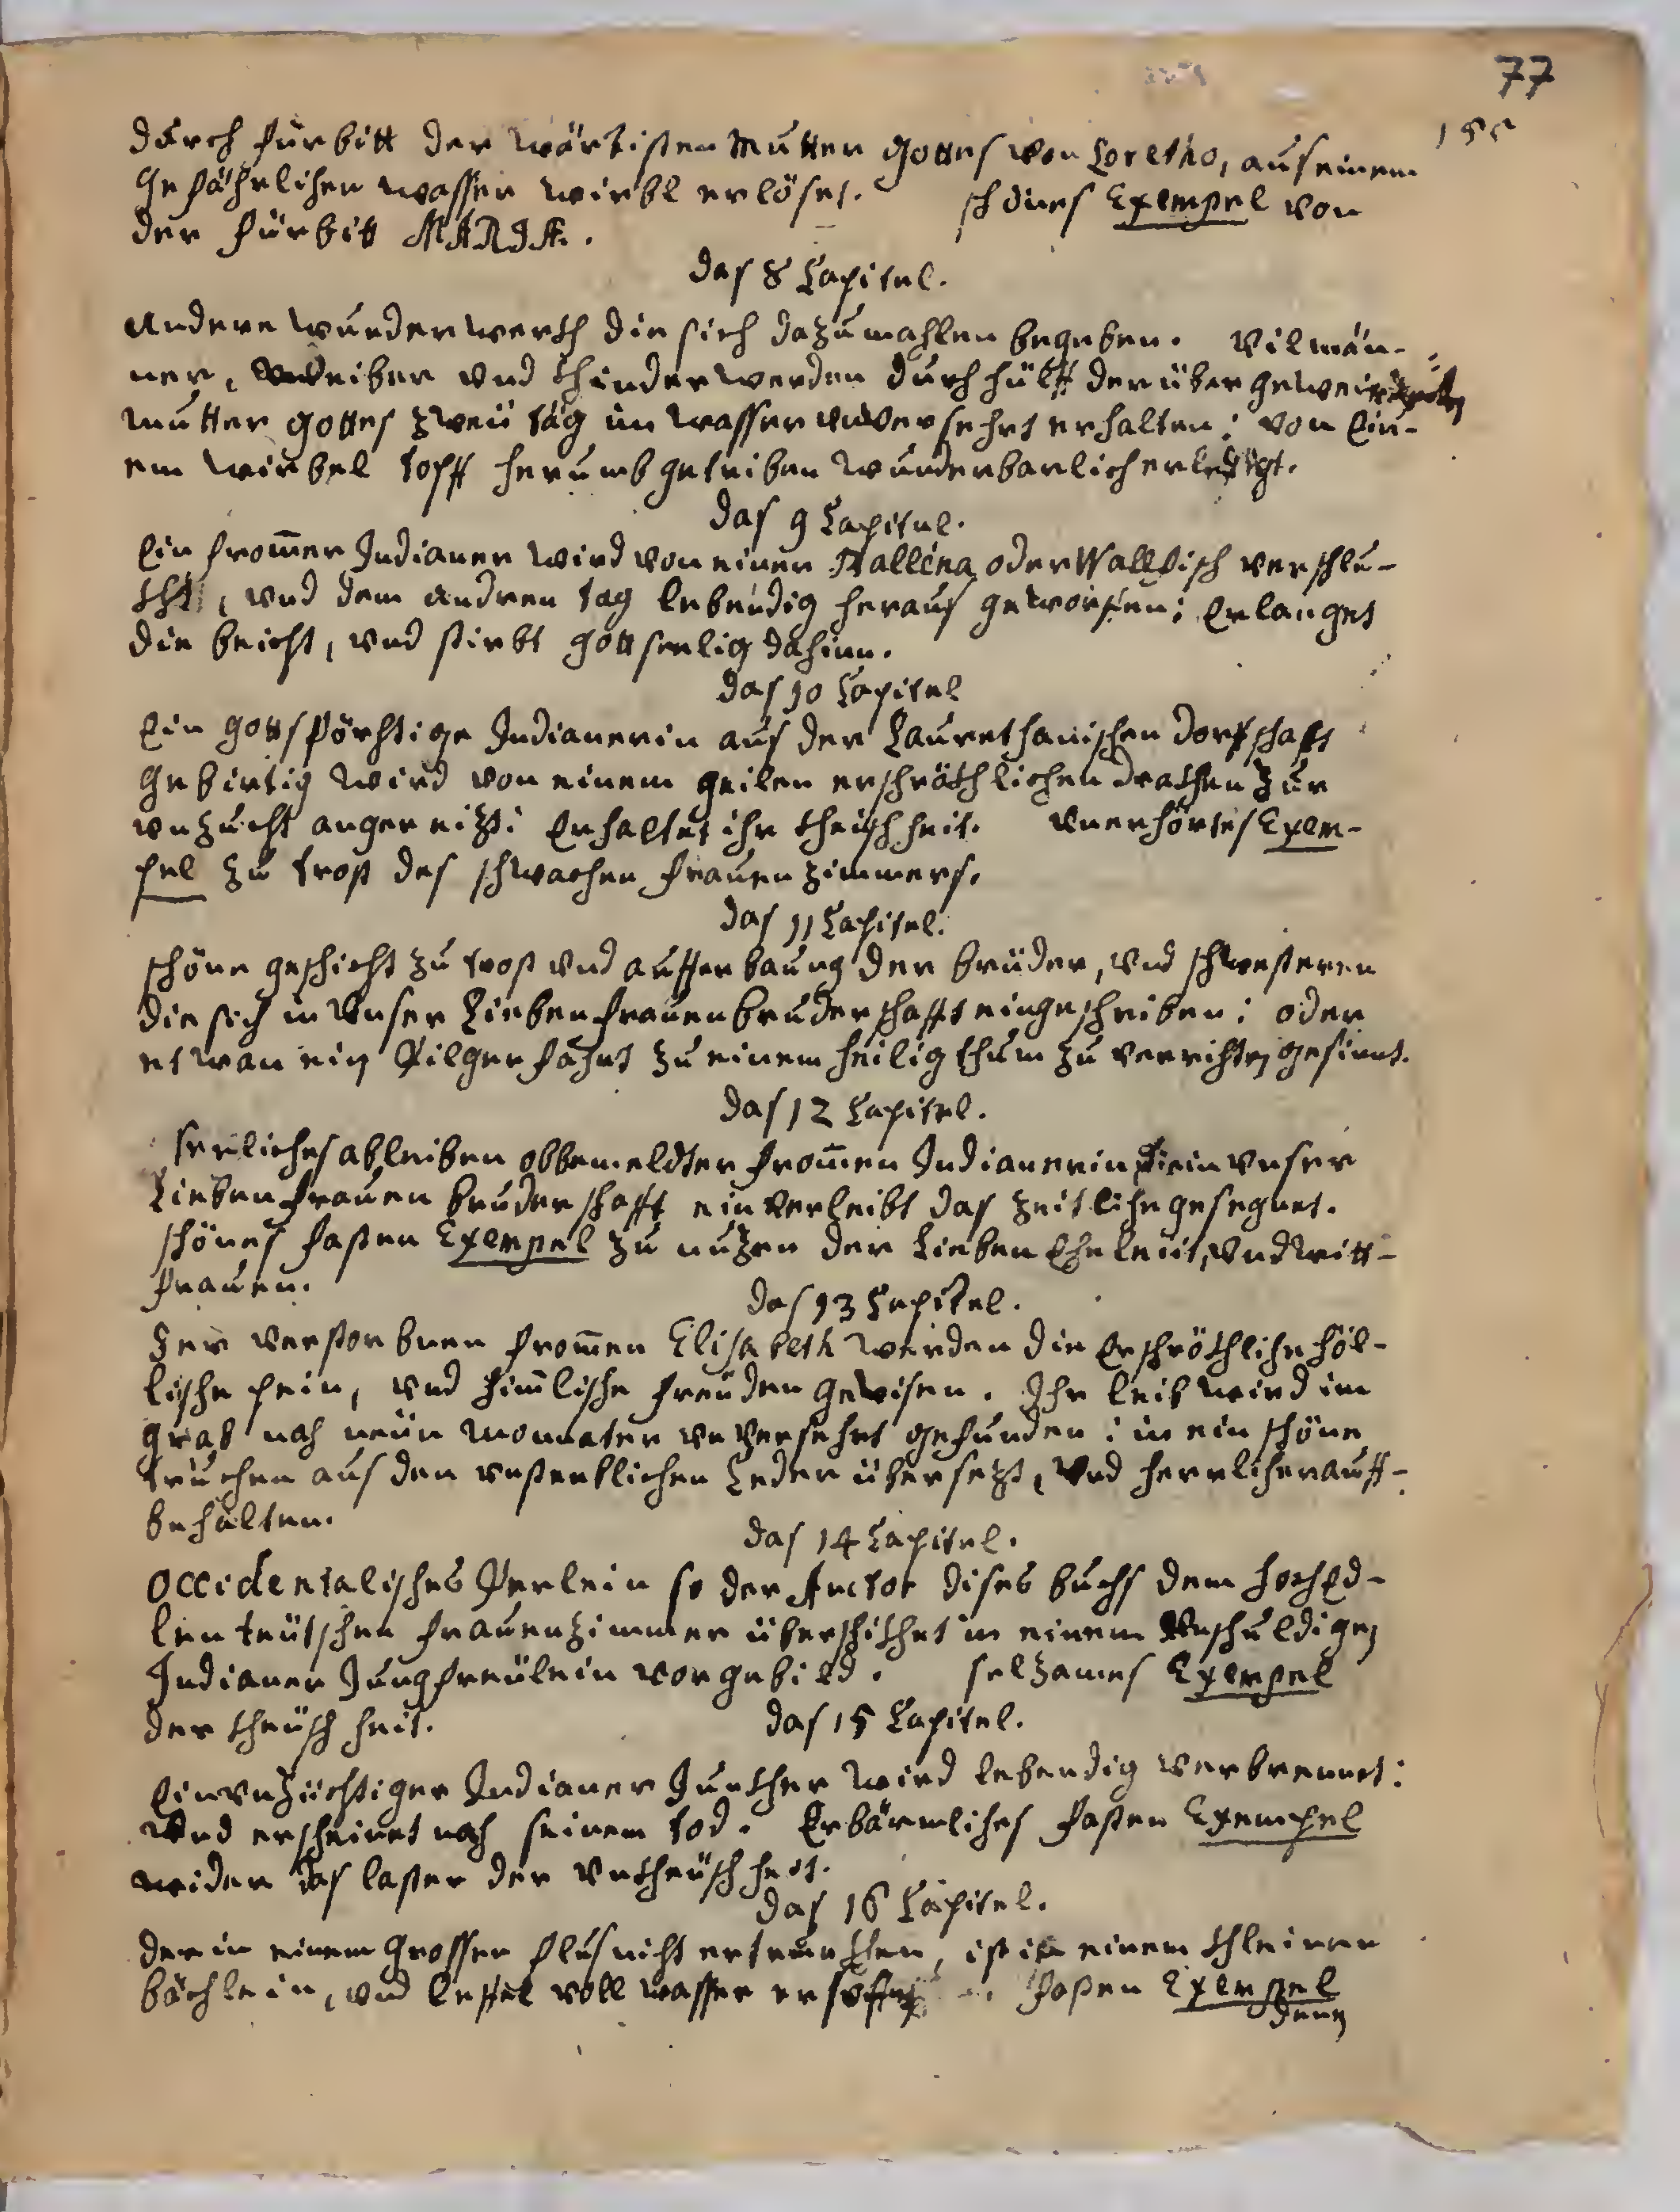 77
155
durch fürbitt der würdisten Mutter Gottes von Loretho, aus einem
gefährlichen wasser wirbl erlöset. schönes Exempel von
der fürbitt MARIÆ.
das 8 Capitel.
Andere wunderwerch die sich dazumahlen begeben. Vil män-
ner, weiber vnd khinder werden durch hülff der über gewei
mutter Gottes zweü täg im wasser vnversehrt erhalten; von Ein-
em wirbel topff herumb getriben wunderbarlich erlediget.
das 9 Capitel.
Ein from̄er Indianer wird von einer Ballena oder Wallfisch verschlu-
kht, vnd dem andren tag lebendig heraus geworfen; Erlanget
die beicht, vnd stirbt gottseelig dahinn.
das 10 Capitel
Ein gottsförchtige Indianerin aus der Laurethanischen dorfschafft
gebirtig wird von einem geilen erschröckhlichen drachen zur
vnzucht angereitzt: Erhaltet ihr kheüschheit. Vnerhörtes Exem-
pel zu trost des schwachen frauenzimmers.
das 11 Capitel.
schöne geschicht zu trost vnd aufferbauung der brüder, vnd schwesteren
die sich in Vnser Lieben frauen bruderschafft eingeschriben; oder
etwan ein Pilgerfahrt zu einem heiligthum zu verrichten gesinnt.
das 12 Capitel.
seeliches ableiben obbemeldter from̄en Indianerin, die in vnser
Lieben frauen bruderschafft ein verleibt das zeitliche gesegnet.
schönes fasten Exempel zu nuzen der Lieben Eheleüt, vnd witt-
frauen.
das 13 Capitel.
Der verstorbnen from̄en Elisabeth werden die Erschröckhliche höl-
lische pein, vnd him̄lische freüden gewisen. Ihr leib wird im
grab nach neün monnaten vnversehrt gefunden; in ein schöne
truchen aus den vnsterblichen Ceder übersetzt, Vnd herrlicher auff-
behalten.
das 14 Capitel.
Occidentalisches Perlein so der Auctor dises buchs dem hochEd-
len teütschen frauenzimmer überschikhet in einem Vnschuldigen
Indianer Jungfreülein vorgebild. selzames Exempel
der kheüschheit.
das 15 Capitel.
Ein vnzüchtiger Indianer Junkher wird lebendig verbrennet:
Vnd erscheinet nach seinem tod. Erbärmliches fasten Exempel
wider das laster der Vnkheüschheit.
das 16 Capitel.
der in einem grossen flus nicht ertrunkhen, ist in einem khleinen
bächlein, vnd leffel voll wasser ersoffen. fasten Exempel
denen